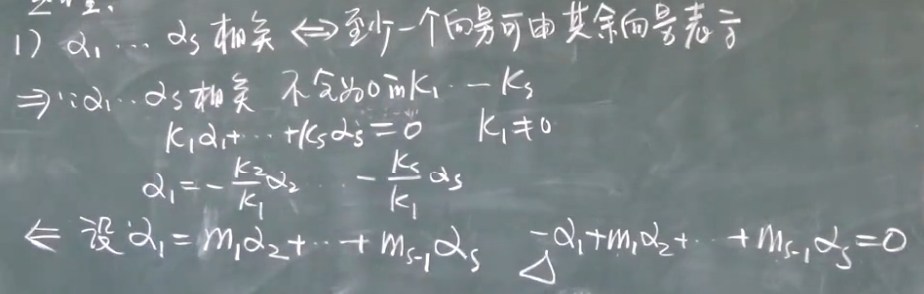 1) α₁ … αs 相关 ⇔ 至少一个向量可由其余向量表示
⇒ ∵ α₁ … αs 相关 不全为0的 k₁ … ks
k₁α₁ + … + ksαs = 0 k₁ ≠ 0
α₁ = -k₂/k₁ α₂ … -ks/k₁ αs
⇐ 设 α₁ = m₁α₂ + … + ms-₁αs -α₁ + m₁α₂ + … + ms-₁αs = 0